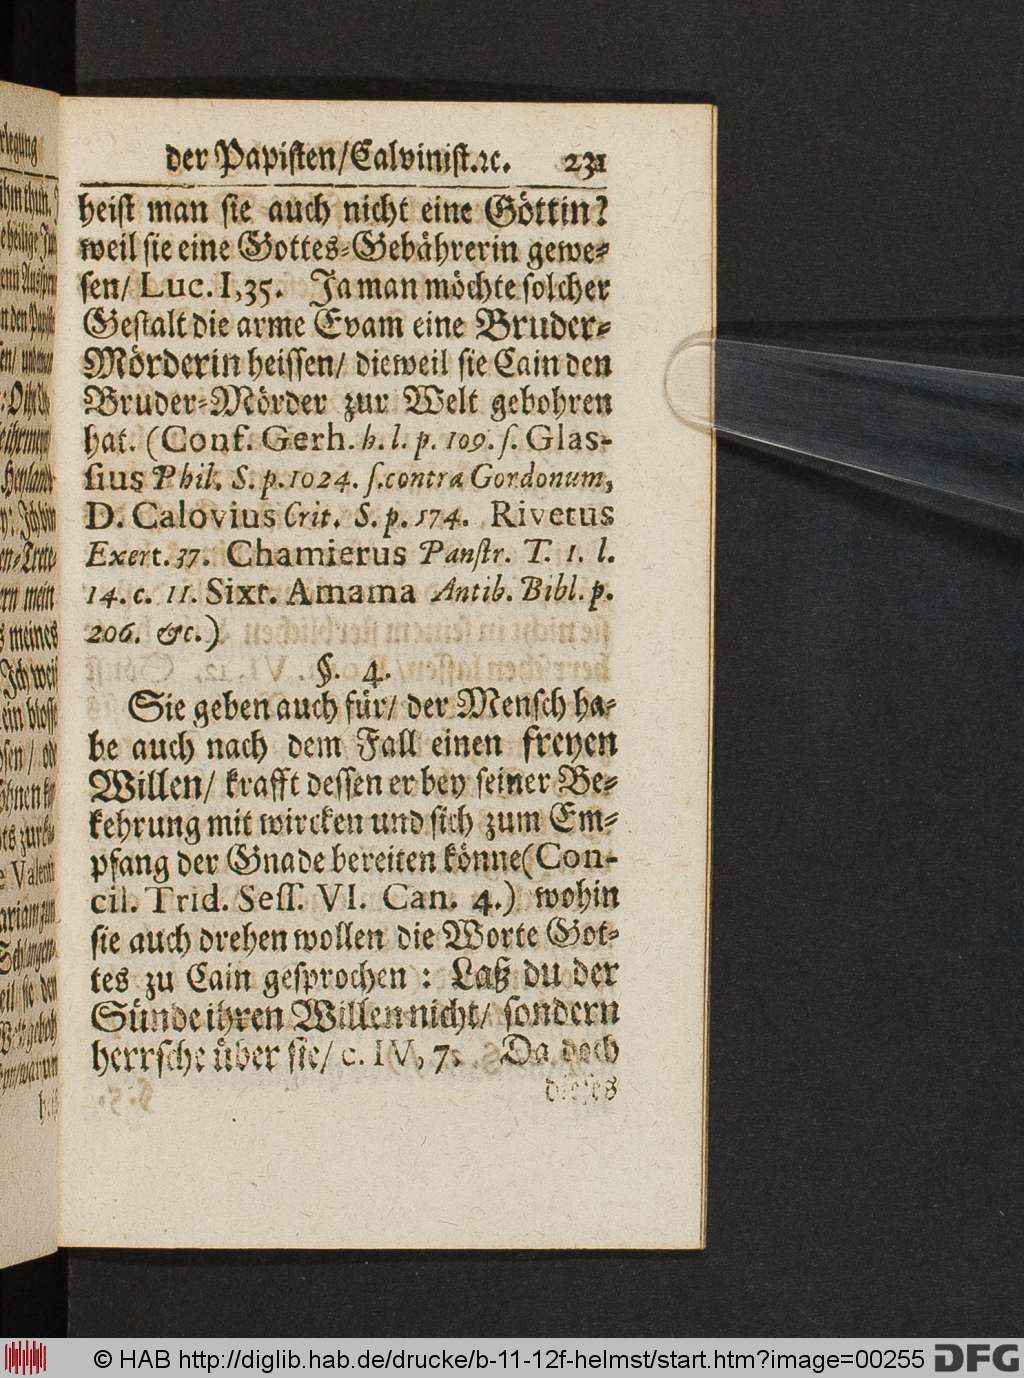 der Papisten/Calvinist.ꝛc. 231
heist man sie auch nicht eine Göttin?
weil sie eine Gottes-Gebährerin gewe-
sen/ Luc. I,35. Ja man möchte solcher
Gestalt die arme Evam eine Bruder-
Mörderin heissen/ dieweil sie Cain den
Bruder-Mörder zur Welt gebohren
hat. (Conf. Gerh. h. l. p. 109. s. Glas-
sius Phil. S. p. 1024. s. contra Gordonum,
D. Calovius Crit. S. p. 174. Rivetus
Exert. 37. Chamierus Panstr. T. 1. l.
14. c. 11. Sixt. Amama Antib. Bibl. p.
206. &c.)
§. 4.
Sie geben auch für/ der Mensch ha-
be auch nach dem Fall einen freyen
Willen/ krafft dessen er bey seiner Be-
kehrung mit wircken und sich zum Em-
pfang der Gnade bereiten könne (Con-
cil. Trid. Sess. VI. Can. 4.) wohin
sie auch drehen wollen die Worte Got-
tes zu Cain gesprochen: Laß du der
Sünde ihren Willen nicht/ sondern
herrsche über sie/ c. IV, 7. Da doch
dieses
© HAB http://diglib.hab.de/drucke/b-11-12f-helmst/start.htm?image=00255
DFG